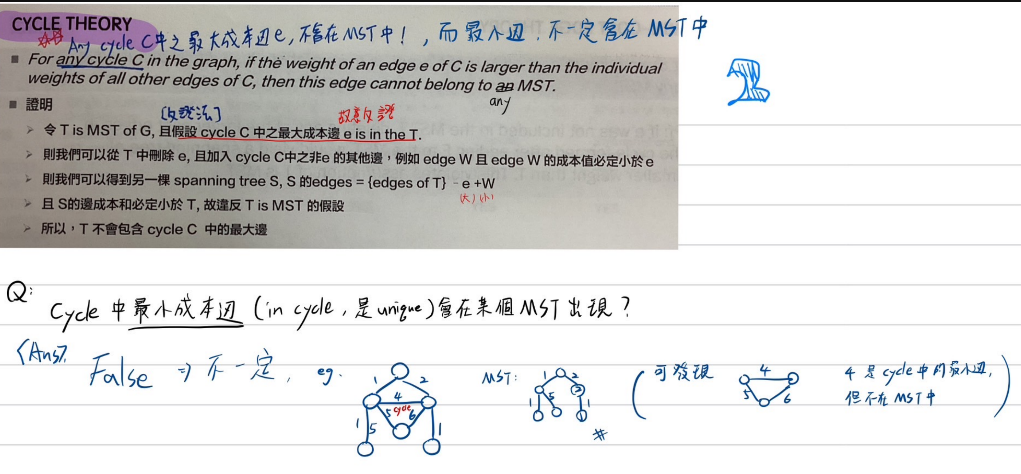 CYCLE THEORY
Any cycle C中之最大成本边e,不會在MST中!,而最小边.不一定會在MST中
For any cycle C in the graph, if the weight of an edge e of C is larger than the individual
weights of all other edges of C, then this edge cannot belong to an MST.
any
證明
[反證法] 故意反證
令 T is MST of G, 且假設 cycle C 中之最大成本邊 e is in the T.
則我們可以從 T 中刪除 e, 且加入 cycle C中之非e 的其他邊,例如 edge W 且 edge W 的成本值必定小於 e
則我們可以得到另一棵 spanning tree S, S 的edges = {edges of T} - e +W
(大) (小)
且 S的邊成本和必定小於 T, 故違反 T is MST 的假設
所以,T 不會包含 cycle C 中的最大邊
Q:
Cycle 中最小成本边 (in cycle,是unique)會在某個 MST 出現?
<Ans>
False ⇒ 不一定, eg.
1 2
4
5 cycle 6
1 5 1
MST:
1 2
1 5 2 1
#
(可發現
4
5 6
4 是 cycle 中的最小边,
但不在 MST中)